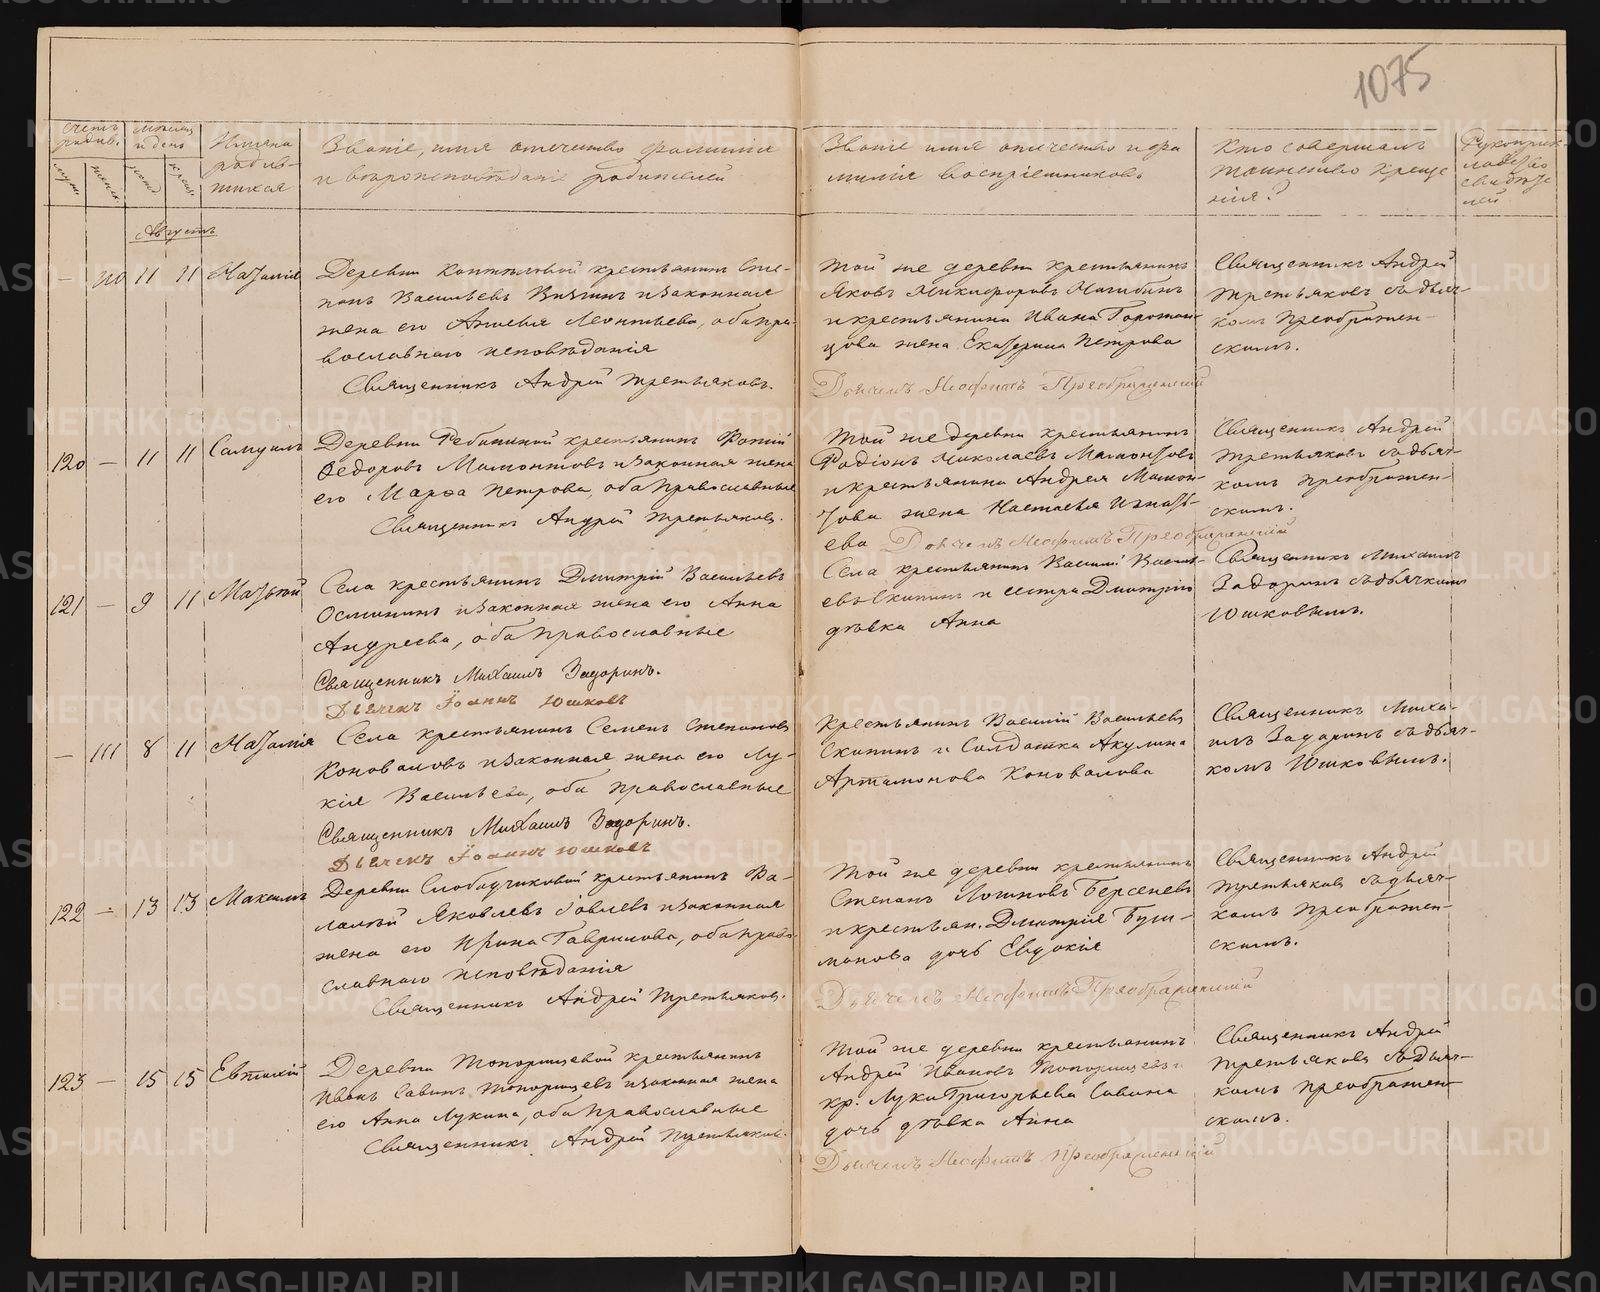 1075
Счетъ родив.
Мѣсяц и день
Имена родив-
шихся
Званіе, имя отечество фамилія
и вѣроисповѣданіе родителей
Званіе имя отечество и фа
милія воспріемниковъ
Кто совершалъ
таинство креще
нія?
Рукоприк-
ладство
свидѣте
лей
муж.
женск.
рожд.
крещ.
Августъ
— 110 11 11 Наталія
Деревни крестьянинъ Сте-
панъ Васильевъ и законная
жена его Леонтьева, оба пра-
вославнаго исповѣданія
Священникъ Андрей Третьяковъ.
Той же деревни крестьянинъ
Яковъ Никифоровъ
и крестьянина Ивана
жена Екатерина Петрова
Дьячекъ Неофитъ Преображенскій
Священникъ Андрей
Третьяковъ съ дьяч-
комъ Преображен-
скимъ.
120 — 11 11 Самуилъ
Деревни крестьянинъ Фотій
Ѳедоровъ Мамонтовъ и законная жена
его Марѳа Петрова, оба православные
Священникъ Андрей Третьяковъ.
Той же деревни крестьянинъ
Родіонъ Николаевъ Мамонтовъ
и крестьянина Андрея Мамон-
това жена Настасья Игнать-
ева Дьячекъ Неофитъ Преображенскій
Священникъ Андрей
Третьяковъ съ дьяч-
комъ Преображен-
скимъ.
121 — 9 11 Матѳей
Села крестьянинъ Дмитрій Васильевъ
и законная жена его Анна
Андреева, оба православные
Священникъ Михаилъ Задоринъ.
Дьячекъ Іоаннъ Юшковъ
Села крестьянинъ Василій Василь-
евъ Скипинъ и сестра Дмитрія
дѣвка Анна
Священникъ Михаилъ
Задоринъ съ дьячкомъ
Юшковымъ.
— 111 8 11 Наталія
Села крестьянинъ Семенъ Степановъ
Коноваловъ и законная жена его Лу-
кія Васильева, оба православные
Священникъ Михаилъ Задоринъ.
Дьячекъ Іоаннъ Юшковъ
Крестьянинъ Василій Васильевъ
Скипинъ и Солдатка Акулина
Артамонова Коновалова
Священникъ Миха-
илъ Задоринъ съ дьяч-
комъ Юшковымъ.
122 — 13 13 Максимъ
Деревни Слободчиковой крестьянинъ Ва-
Яковлевъ Іовлевъ и законная
жена его Ирина Гаврилова, оба право-
славнаго исповѣданія
Священникъ Андрей Третьяковъ.
Той же деревни крестьянинъ
Степанъ Логиновъ Берсеневъ
и крестьян. Дмитрія
дочь Евдокія
Дьячекъ Неофитъ Преображенскій
Священникъ Андрей
Третьяковъ съ дьяч-
комъ Преображен-
скимъ.
123 — 15 15 Евтихій
Деревни Топорищевой крестьянинъ
Иванъ Савинъ Топорищевъ и законная жена
его Анна Лукина, оба православные
Священникъ Андрей Третьяковъ.
Той же деревни крестьянинъ
Андрей Ивановъ Топорищевъ и
кр: Луки Григорьева Савина
дочь дѣвка Анна
Дьячекъ Неофитъ Преображенскій
Священникъ Андрей
Третьяковъ съ дьяч-
комъ Преображен-
скимъ.
METRIKI.GASO-URAL.RU